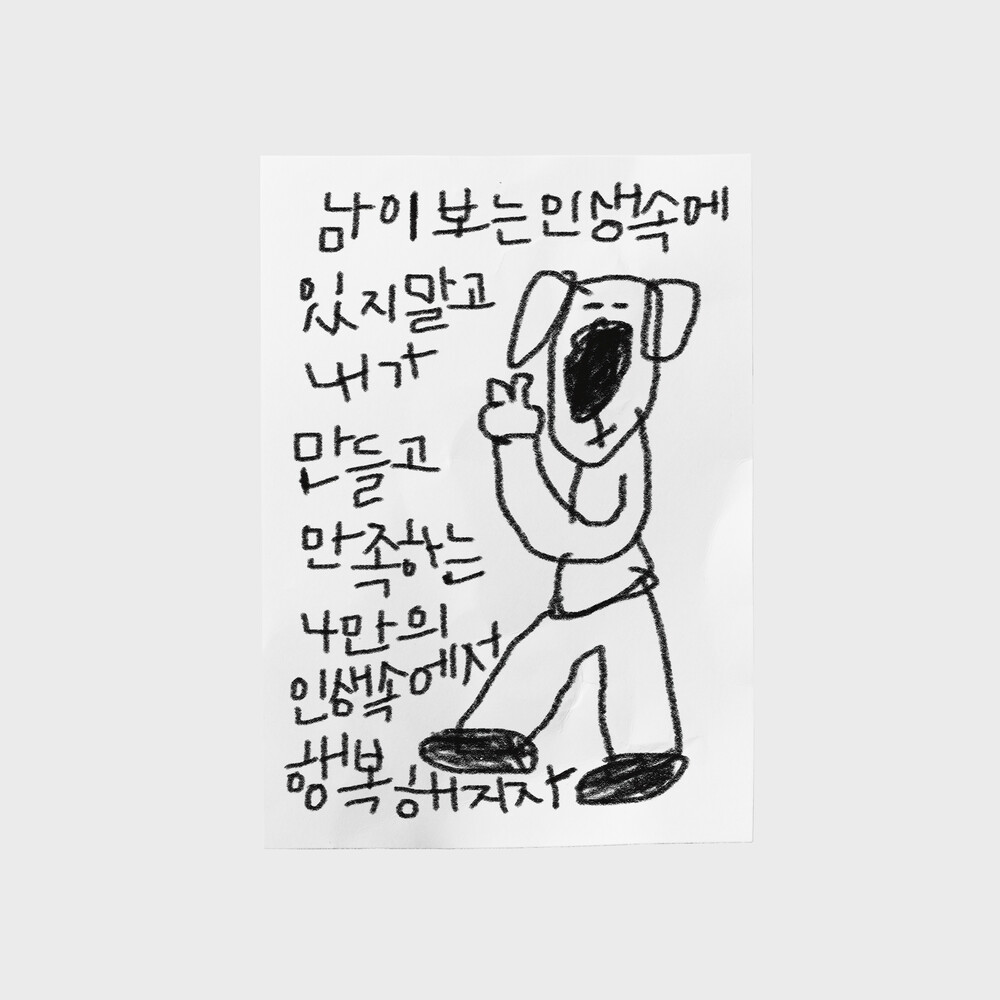 남이 보는 인생속에
있지말고
내가
만들고
만족하는
나만의
인생속에서
행복해지자